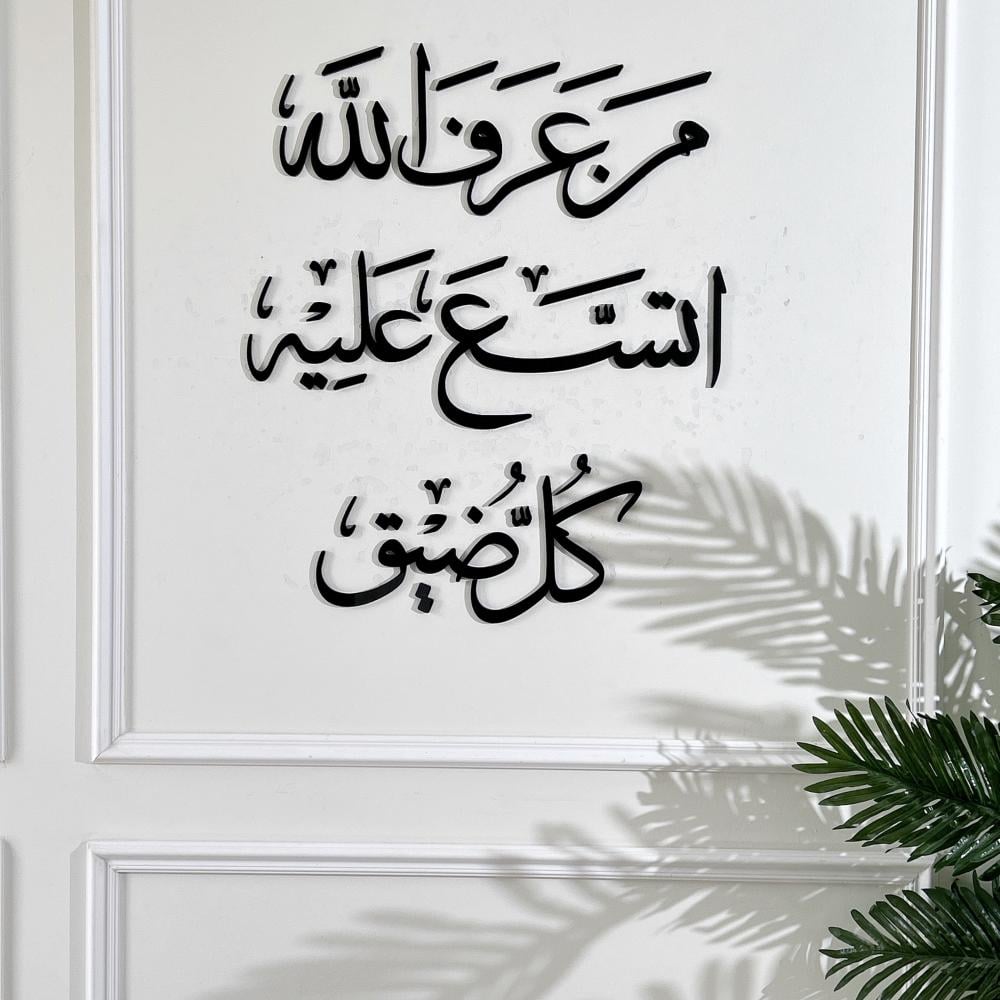 من عَرَفَ اللَّه
اتسَّعَ عَلَيْهِ
كُلُّ ضيْق